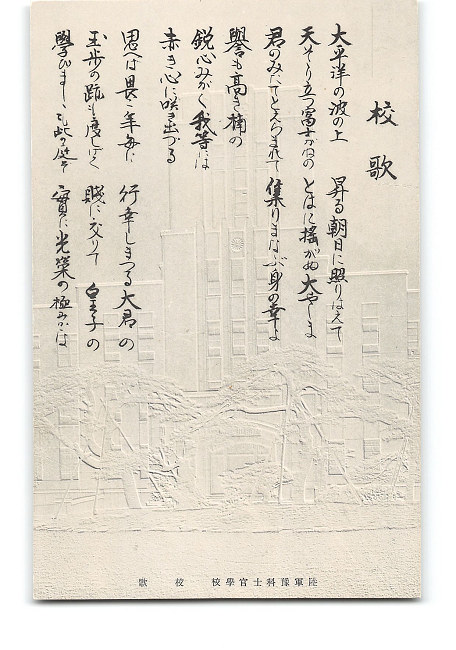 校歌
大平洋の波の上 昇る朝日に照りはえて
天そゝり立つ富士がねの とはに搖がぬ大やしま
君のみたてとえらまれて 集りまなぶ身の幸よ
譽も高き楠の
鋭心みがく我等には
赤き心に咲き出づる
思へば畏こ年毎に 行幸しまつる大君の
玉歩の跡も度しげく 賤に交りて 皇子の
學びましゝも此の庭ぞ 實に光榮の極みかな
陸軍豫科士官學校 校歌